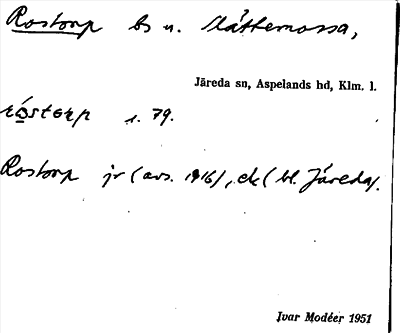 Rostorp bs u. Slåttemossa,
Järeda sn, Aspelands hd, Klm. l.
róstorp s. 79.
Rostorp jr (avs. 1916), ek (bl. Järeda).
Ivar Modéer 1951